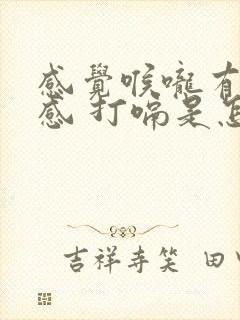 感覺喉嚨有
感 打嗝是怎
吉祥寺笑 田中